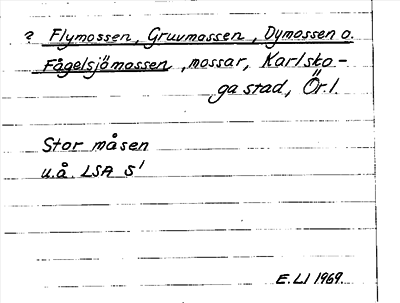 ? Flymossen, Gruvmossen, Dymossen o.
Fågelsjömossen, mossar, Karlsko-
ga stad, Ör. l.
Stor måsen
u.å. LSA S1
E. LI 1969.